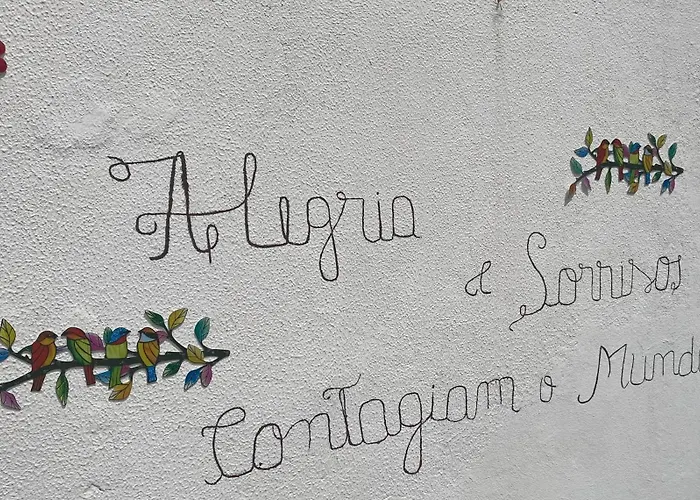 Alegria
e Sorrisos
Contagiam o Mund